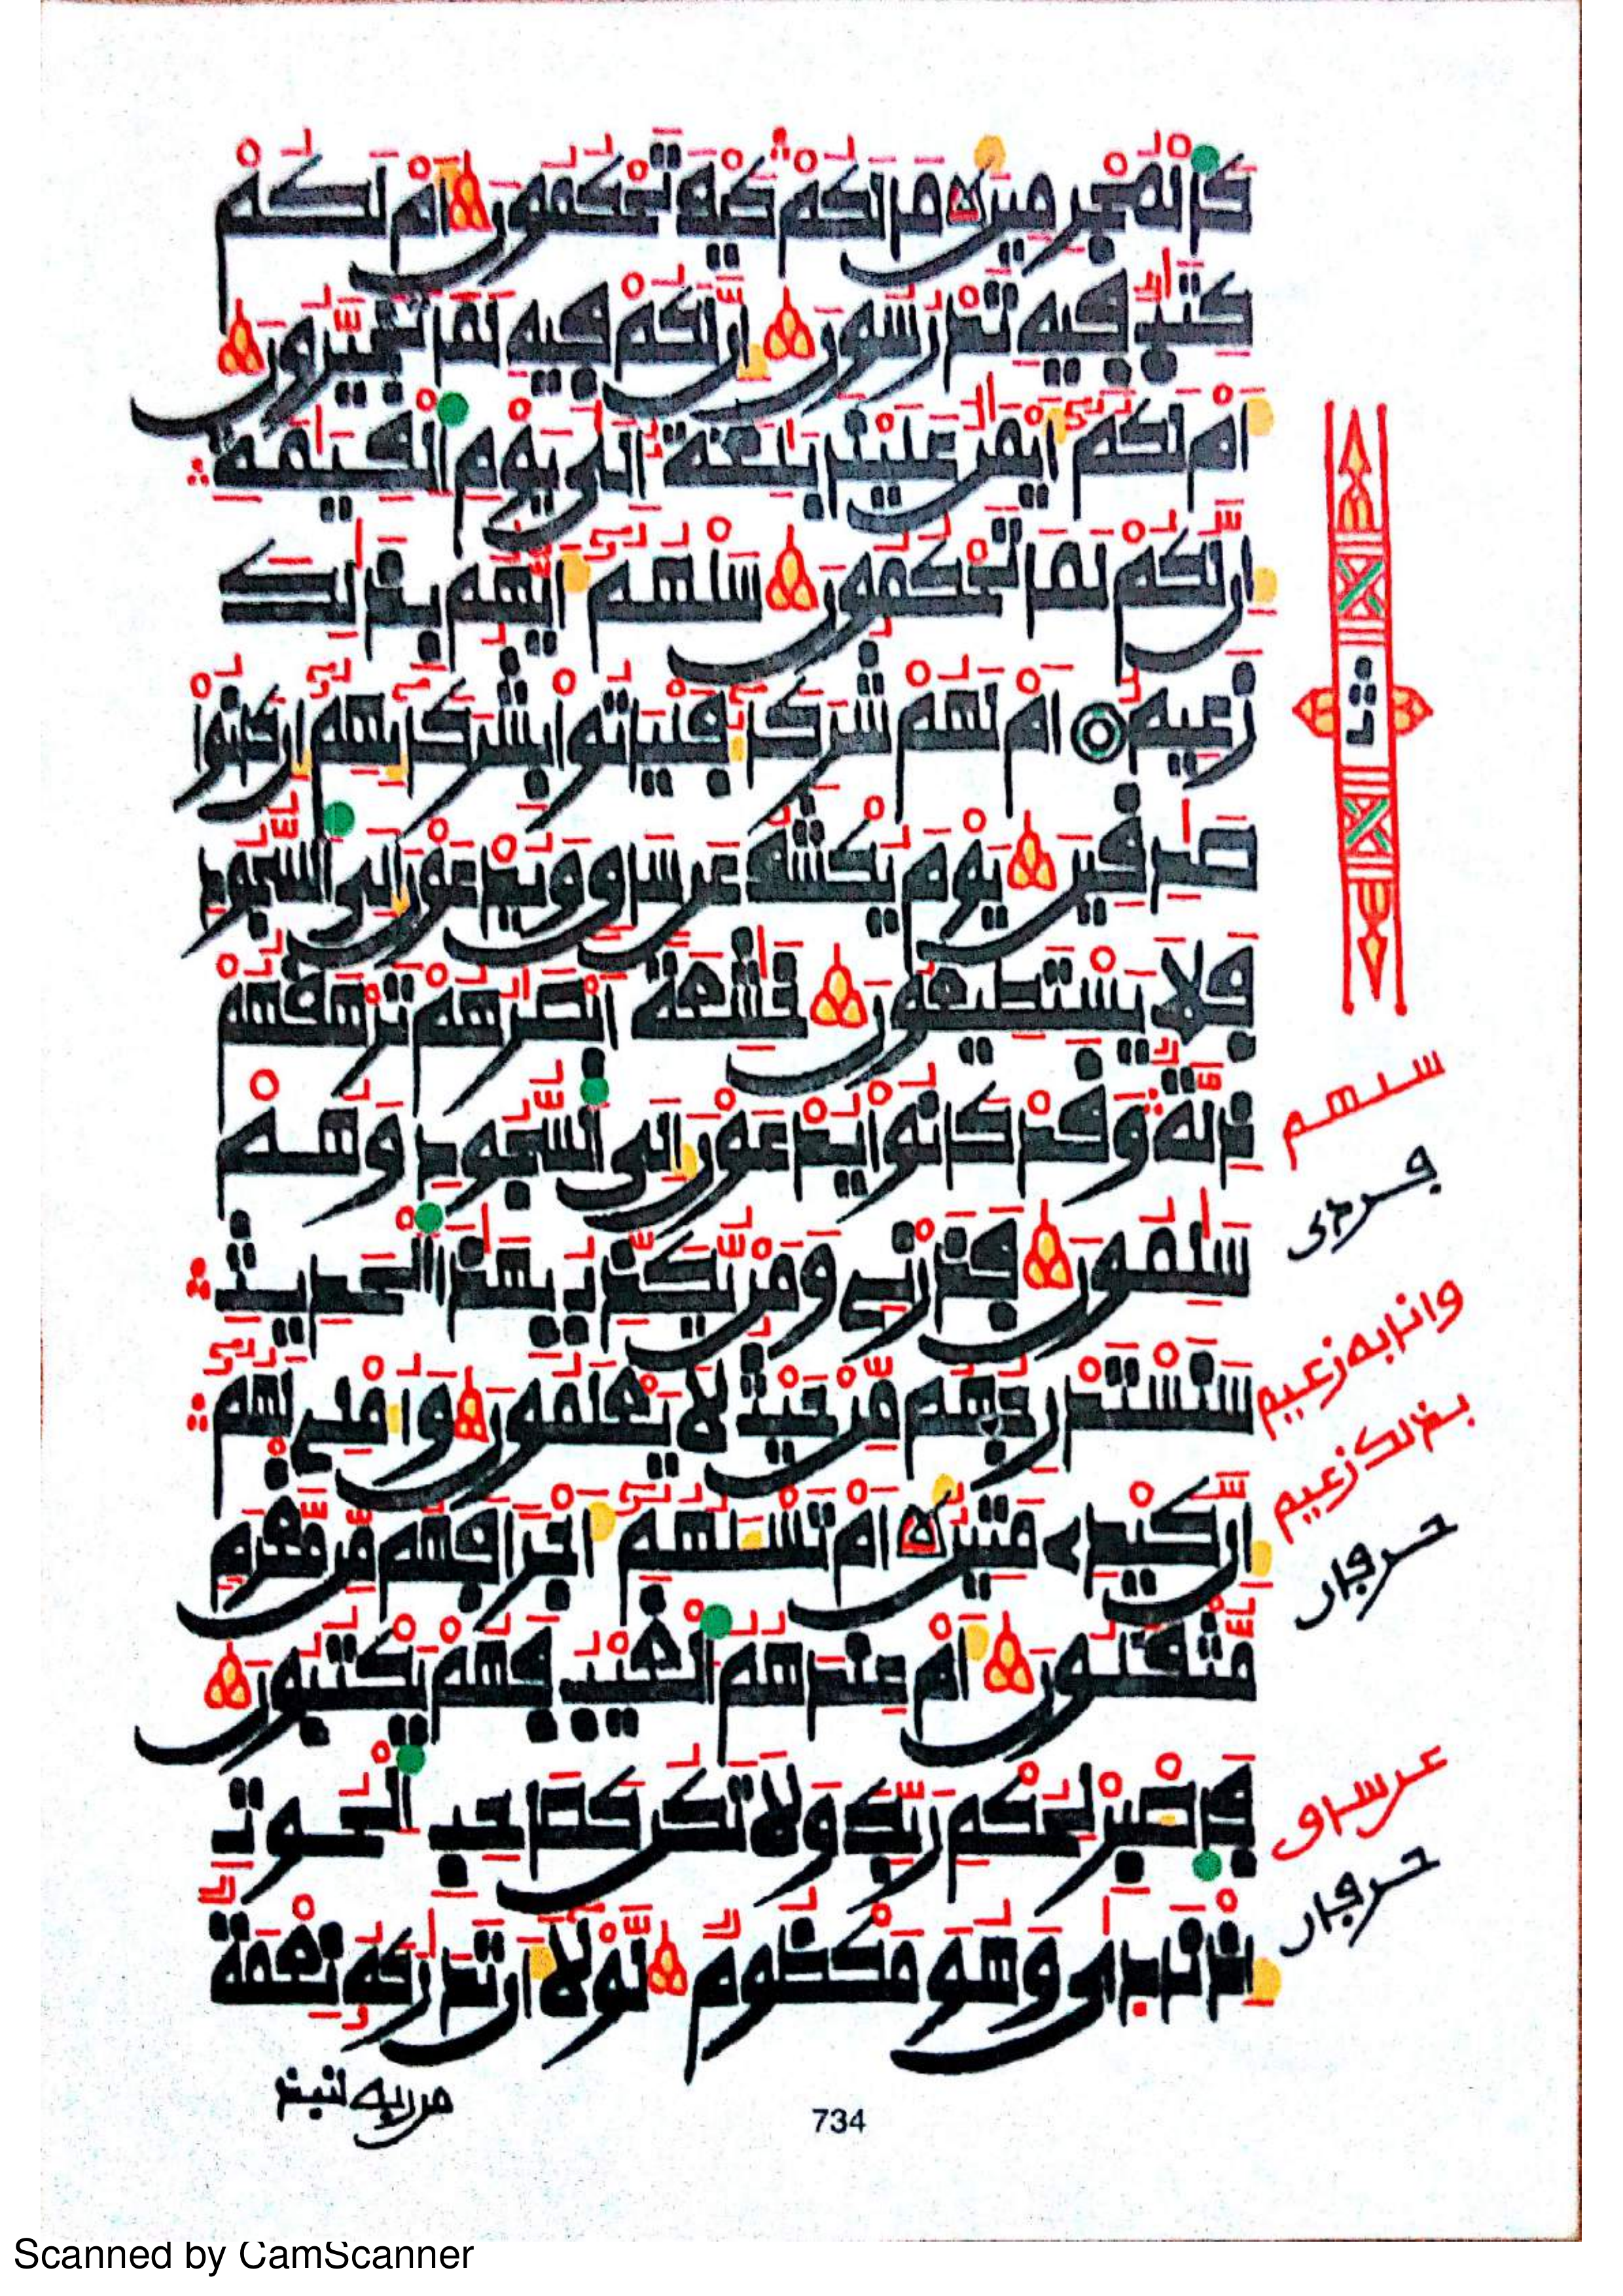 كَالْمُجْرِمِينَ مَا لَكُمْ كَيْفَ تَحْكُمُونَ أَمْ لَكُمْ
كِتَٰبٌ فِيهِ تَدْرُسُونَ إِنَّ لَكُمْ فِيهِ لَمَا تَخَيَّرُونَ
أَمْ لَكُمُ أَيْمَٰنٌ عَلَيْنَا بَٰلِغَةٌ إِلَىٰ يَوْمِ الْقِيَٰمَةِ
إِنَّ لَكُمْ لَمَا تَحْكُمُونَ سَلْهُمُ أَيُّهُم بِذَٰلِكَ
زَعِيمٌ أَمْ لَهُمْ شُرَكَاءُ فَلْيَاتُوا بِشُرَكَائِهِمُ إِن كَانُوا
صَٰدِقِينَ يَوْمَ يُكْشَفُ عَن سَاقٍ وَيُدْعَوْنَ إِلَى السُّجُودِ
فَلَا يَسْتَطِيعُونَ خَٰشِعَةً أَبْصَٰرُهُمْ تَرْهَقُهُمْ
ذِلَّةٌ وَقَدْ كَانُوا يُدْعَوْنَ إِلَى السُّجُودِ وَهُمْ
سَٰلِمُونَ فَذَرْنِي وَمَن يُّكَذِّبُ بِهَٰذَا الْحَدِيثِ
سَنَسْتَدْرِجُهُم مِّنْ حَيْثُ لَا يَعْلَمُونَ وَأُمْلِي لَهُمُ
إِنَّ كَيْدِي مَتِينٌ أَمْ تَسْـَٔلُهُمُ أَجْرًا فَهُم مِّن مَّغْرَمٍ
مُّثْقَلُونَ أَمْ عِندَهُمُ الْغَيْبُ فَهُمْ يَكْتُبُونَ
فَاصْبِرْ لِحُكْمِ رَبِّكَ وَلَا تَكُن كَصَاحِبِ الْحُوتِ
إِذْ نَادَىٰ وَهُوَ مَكْظُومٌ لَّوْلَا أَن تَدَٰرَكَهُ نِعْمَةٌ
ثمن
سلهم
وانا به زعيم
بذلك زعيم
عن ساق
من ربه لنبذ
734
Scanned by CamScanner